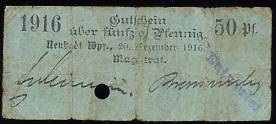 1916 Gutschein 50 Pf.
über fünfzig Pfennig.
Neustadt Wpr., 20. Dezember 1916.
Magistrat.